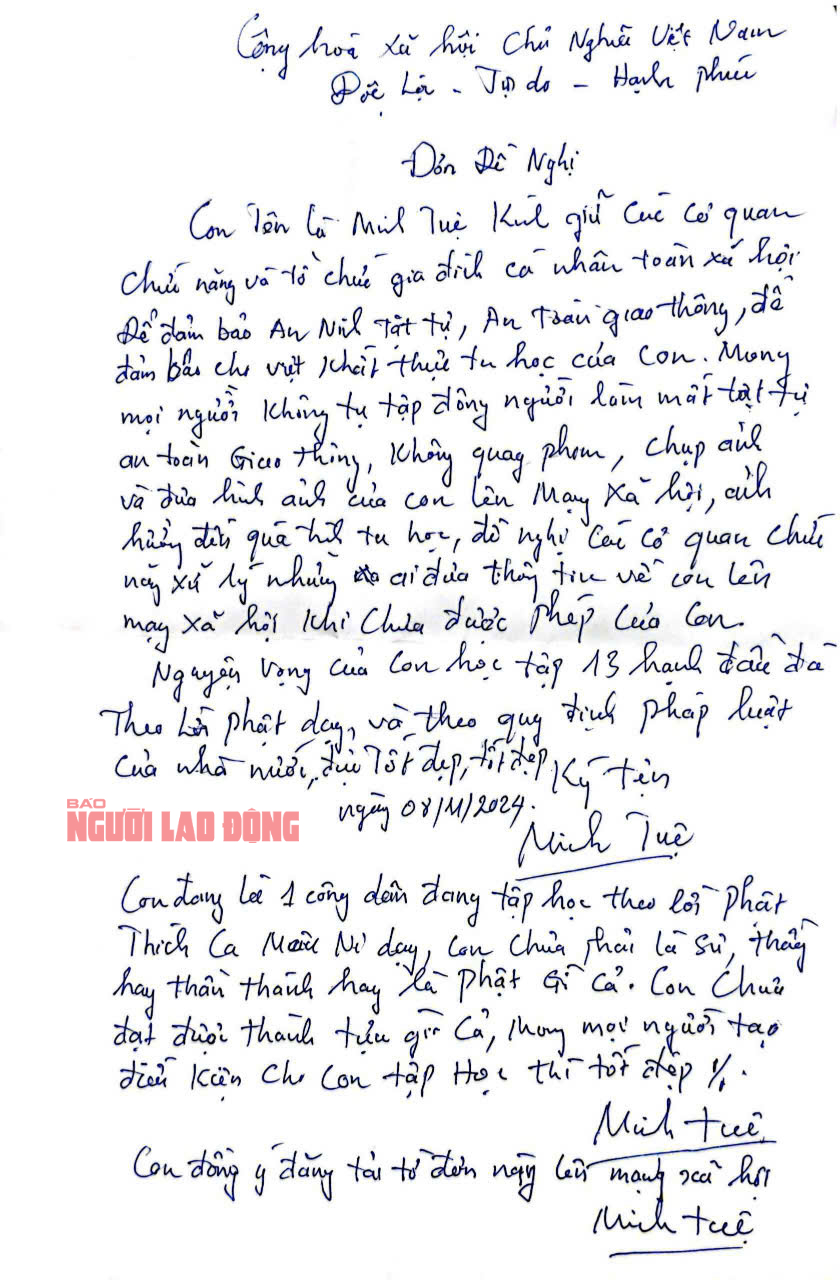 Cộng hoà xã hội Chủ Nghĩa Việt Nam
Độc lập - Tự do - Hạnh phúc
Đơn Đề Nghị
Con Tên là Minh Tuệ Kính gửi Các Cơ quan
Chức năng và tổ chức gia đình cá nhân toàn xã hội
Để đảm bảo An Ninh Trật tự, An toàn giao thông, để
đảm bảo cho việc Khất thực tu học của Con. Mong
mọi người Không tụ tập đông người làm mất trật tự
an toàn Giao thông, Không quay phim, chụp ảnh
và đưa hình ảnh của con lên Mạng Xã hội, ảnh
hưởng đến quá trình tu học, đề nghị Các Cơ quan Chức
năng xử lý những ai đưa thông tin về con lên
mạng xã hội Khi Chưa được phép Của Con.
Nguyện vọng của Con học tập 13 hạnh đầu đà
Theo lời phật dạy, và theo quy định pháp luật
Của nhà nước, được Tốt đẹp, tốt đẹp
Ký tên
ngày 08/11/2024.
BÁO
NGƯỜI LAO ĐỘNG
Minh Tuệ
Con đang là 1 công dân đang tập học theo lời phật
Thích Ca Mâu Ni dạy, con chưa phải là Sư, thầy
hay thần thánh hay là Phật Gì Cả. Con Chưa
đạt được thành tựu gì Cả, Mong mọi người tạo
điều Kiện Cho Con tập Học thì tốt đẹp ./.
Minh Tuệ
Con đồng ý đăng tải tờ đơn này lên mạng xã hội
Minh Tuệ